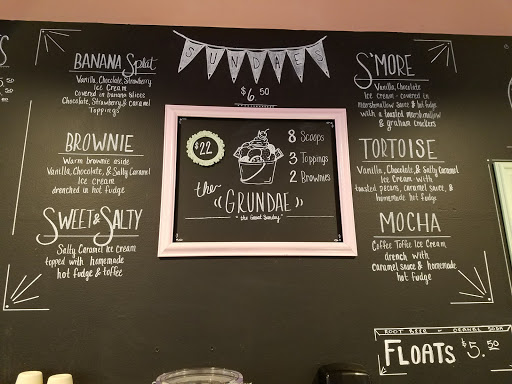 SUNDAES
$6.50
BANANA Split
Vanilla, Chocolate, Strawberry
Ice Cream
covered in banana slices
Chocolate, Strawberry, & caramel
Toppings
BROWNIE
Warm brownie aside
Vanilla, Chocolate, & Salty Caramel
Ice Cream
drenched in hot fudge
SWEET & SALTY
Salty Caramel Ice Cream
topped with homemade
hot fudge & toffee
$22
8 Scoops
3 Toppings
2 Brownies
the
"GRUNDAE"
"the Grand Sunday"
S'MORE
Vanilla, Chocolate
Ice cream - covered in
Marshmallow sauce & hot fudge
with a toasted marshmallow
& graham crackers
TORTOISE
Vanilla, Chocolate, & Salty Caramel
Ice Cream with
toasted pecans, caramel sauce, &
homemade hot fudge
MOCHA
Coffee Toffee Ice Cream
drench with
caramel sauce & homemade
hot fudge
ROOT BEER or
FLOATS $5.50